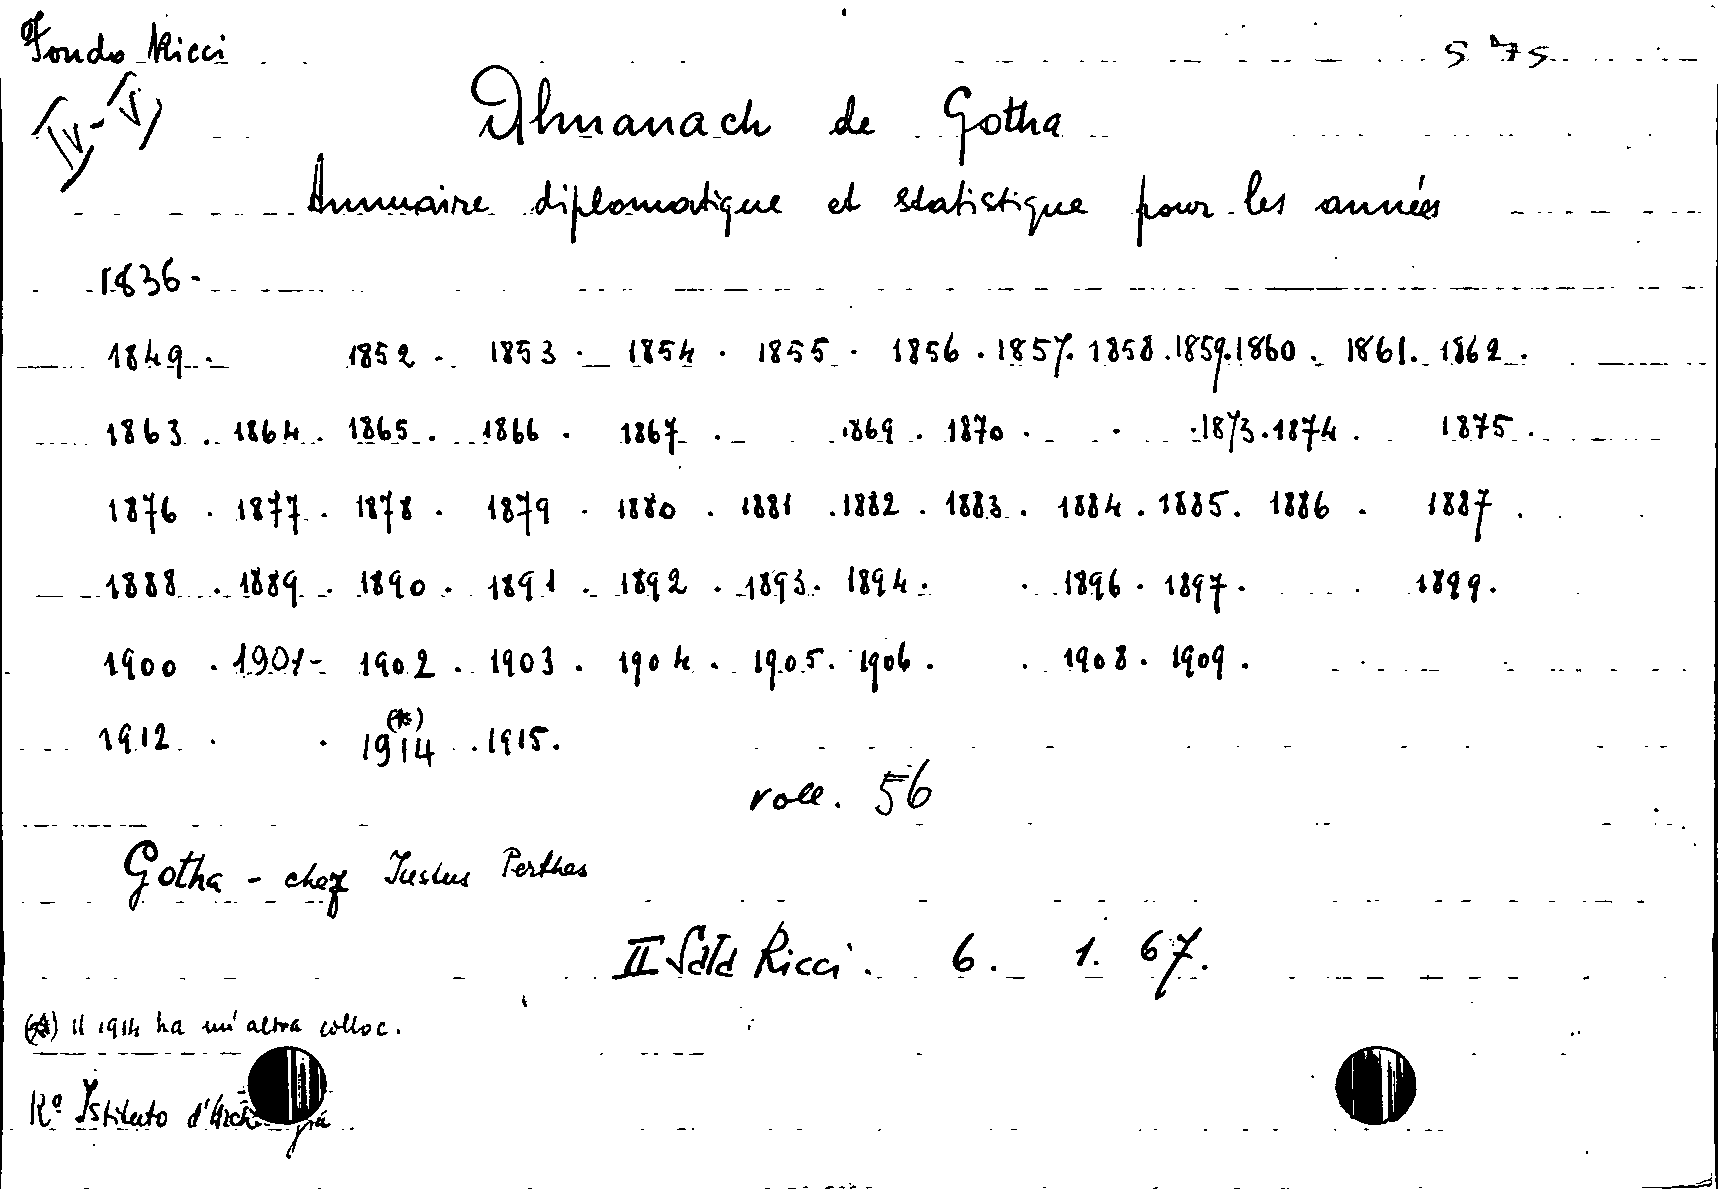 Fondo Ricci 575
IV-V
Almanach de Gotha
Annuaire diplomatique et statistique pour les années
1836-
1849 . 1852 . 1853 . 1854 . 1855 . 1856 . 1857. 1858 . 1859. 1860 . 1861. 1862 .
1863 . 1864 . 1865 . 1866 . 1867 . 1869 . 1870 . . . 1873 . 1874 . 1875 .
1876 . 1877 . 1878 . 1879 . 1880 . 1881 . 1882 . 1883 . 1884 . 1885 . 1886 . 1887 .
1888 . 1889 . 1890 . 1891 . 1892 . 1893 . 1894 . . 1896 . 1897 . . 1899 .
1900 . 1901- 1902 . 1903 . 1904 . 1905 . 1906 . . 1908 . 1909 .
1912 . . 1914 (*) . 1915 .
voll. 56
Gotha - chez Iustus Perthes
II Sala Ricci . 6 . 1. 67.
(*) Il 1914 ha un'altra colloc.
Rº Istituto